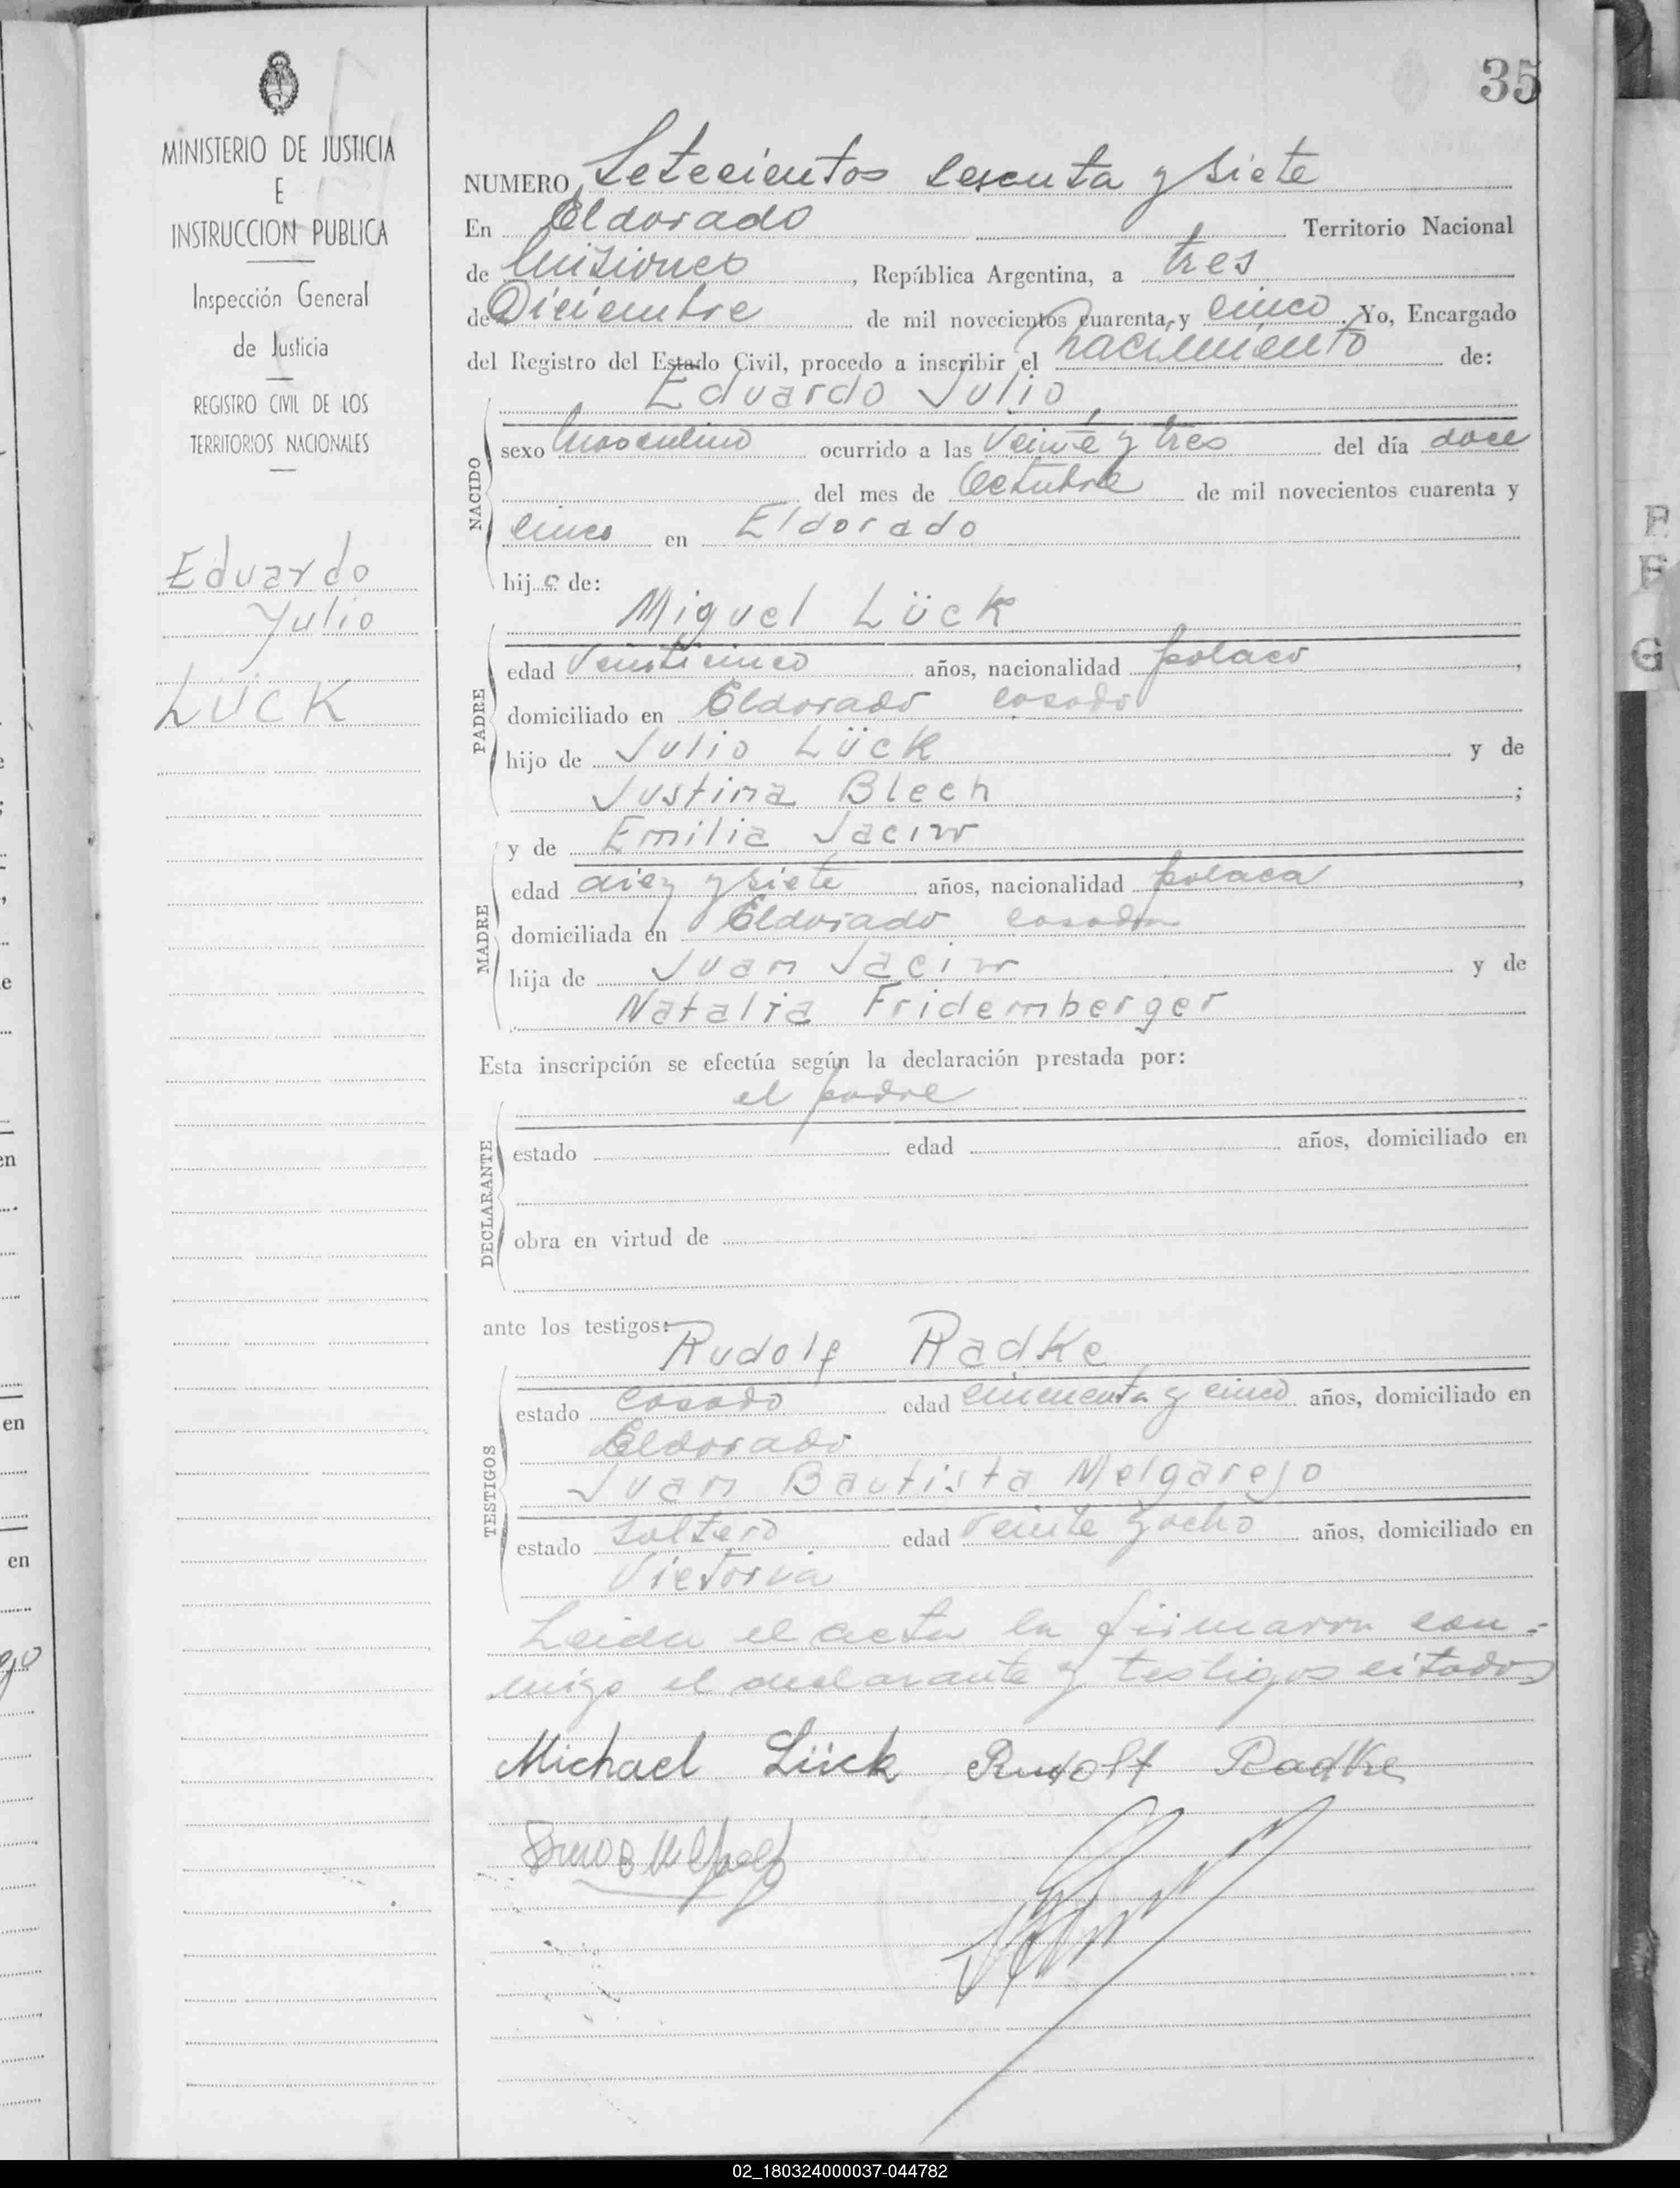 35
MINISTERIO DE JUSTICIA
E
INSTRUCCION PUBLICA
Inspección General
de Justicia
REGISTRO CIVIL DE LOS
TERRITORIOS NACIONALES
Eduardo
Julio
LÜCK
NUMERO Setecientos sesenta y siete
En Eldorado Territorio Nacional
de Misiones, República Argentina, a tres
de Diciembre de mil novecientos cuarenta y cinco. Yo, Encargado
del Registro del Estado Civil, procedo a inscribir el nacimiento de:
Eduardo Julio
NACIDO
sexo Masculino ocurrido a las veinte y tres del día doce
del mes de Octubre de mil novecientos cuarenta y
cinco en Eldorado
hijo de:
Miguel Lück
PADRE
edad Veinticinco años, nacionalidad polaco,
domiciliado en Eldorado casado
hijo de Julio Lück y de
Justina Blech;
y de Emilia Jaciw
MADRE
edad diez y siete años, nacionalidad polaca,
domiciliada en Eldorado casada
hija de Juan Jaciw y de
Natalia Fridemberger
Esta inscripción se efectúa según la declaración prestada por:
el padre
DECLARANTE
estado edad años, domiciliado en
obra en virtud de
ante los testigos:
Rudolf Radke
TESTIGOS
estado casado edad cincuenta y cinco años, domiciliado en
Eldorado
Juan Bautista Melgarejo
estado soltero edad veinte y ocho años, domiciliado en
Victoria
Leida el acta la firmaron con-
migo el declarante y testigos citados
Michael Lück Rudolf Radke
en
en
en
02_180324000037-044782